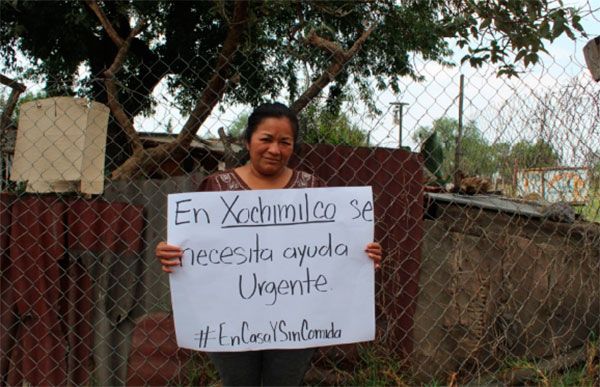 En Xochimilco se
necesita ayuda
Urgente.
#EnCasaYSinComida